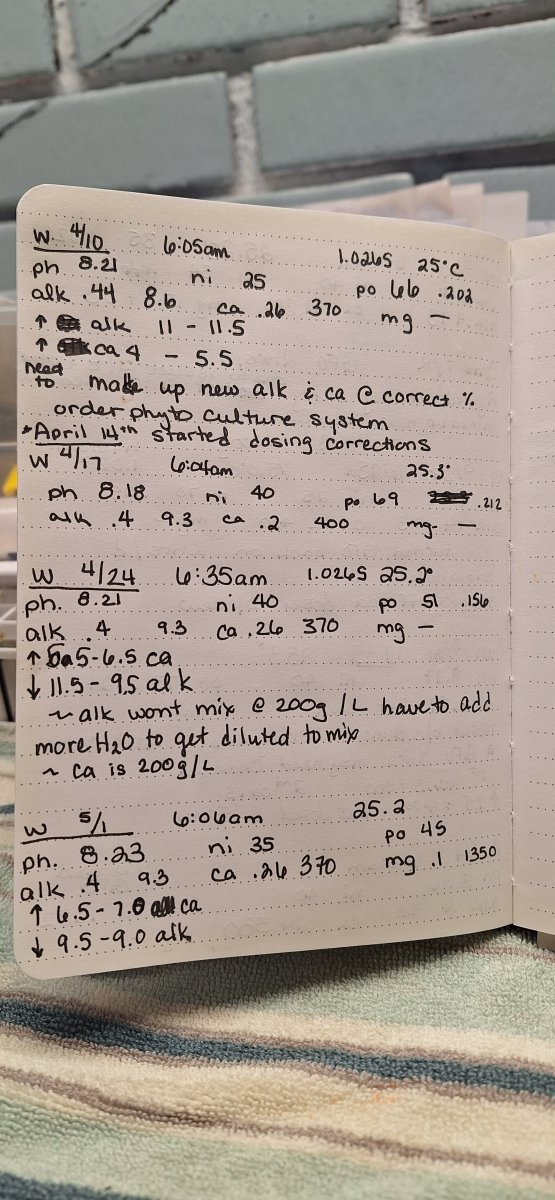 W 4/10 6:05am 1.0265 25°C
ph 8.21 ni 25 po 66 .202
alk .44 8.6 ca .26 370 mg —
↑ alk 11 - 11.5
↑ ca 4 - 5.5
need to make up new alk & ca @ correct %
order phyto culture system
*April 14th started dosing corrections
W 4/17 6:01am 25.3°
ph 8.18 ni 40 po 69 .212
alk .4 9.3 ca .2 400 mg- —
W 4/24 6:35am 1.0265 25.2°
ph. 8.21 ni 40 po 51 .156
alk .4 9.3 ca .26 370 mg —
↑ 5-6.5 ca
↓ 11.5 - 9.5 alk
~ alk wont mix @ 200g/L have to add
more H2O to get diluted to mix
~ ca is 200g/L
W 5/1 6:06am 25.2
ph. 8.23 ni 35 po 45
alk .4 9.3 ca .26 370 mg .1 1350
↑ 6.5 - 7.0 ca
↓ 9.5 - 9.0 alk